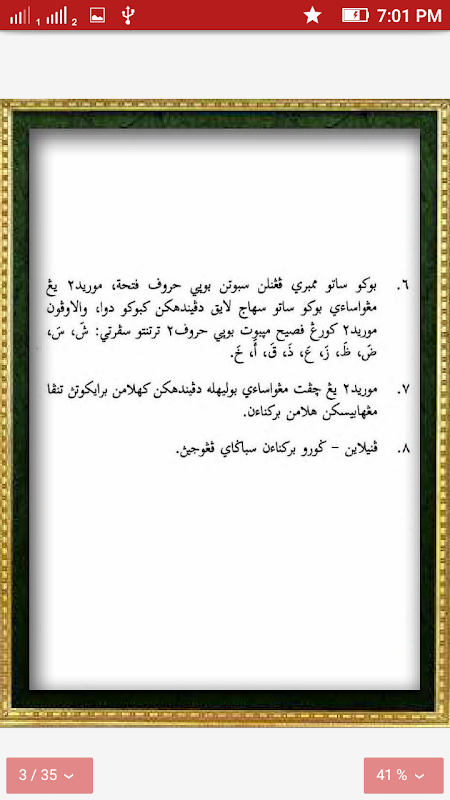 1 2 7:01 PM
٦. بوكو ساتو ممبري ڤڠنلن سبوتن بوڽي حروف فتحة، موريد٢ يڠ
مڠواساءي بوكو ساتو سهاج لايق دڤيندهكن كبوكو دوا، والاوڤون
موريد٢ كورڠ فصيح مڽبوت بوڽي حروف٢ ترتنتو سڤرتي: شَ، سَ،
ضَ، ظَ، زَ، عَ، ذَ، قَ، أَ، خَ.
٧. موريد٢ يڠ چڤت مڠواساءي بوليهله دڤيندهكن كهلامن برايكوتڽ تنڤا
مڠهابيسكن هلامن بركناءن.
٨. ڤنيلاين – ݢورو بركناءن سباݢاي ڤڠوجيڽ.
3 / 35
41 %